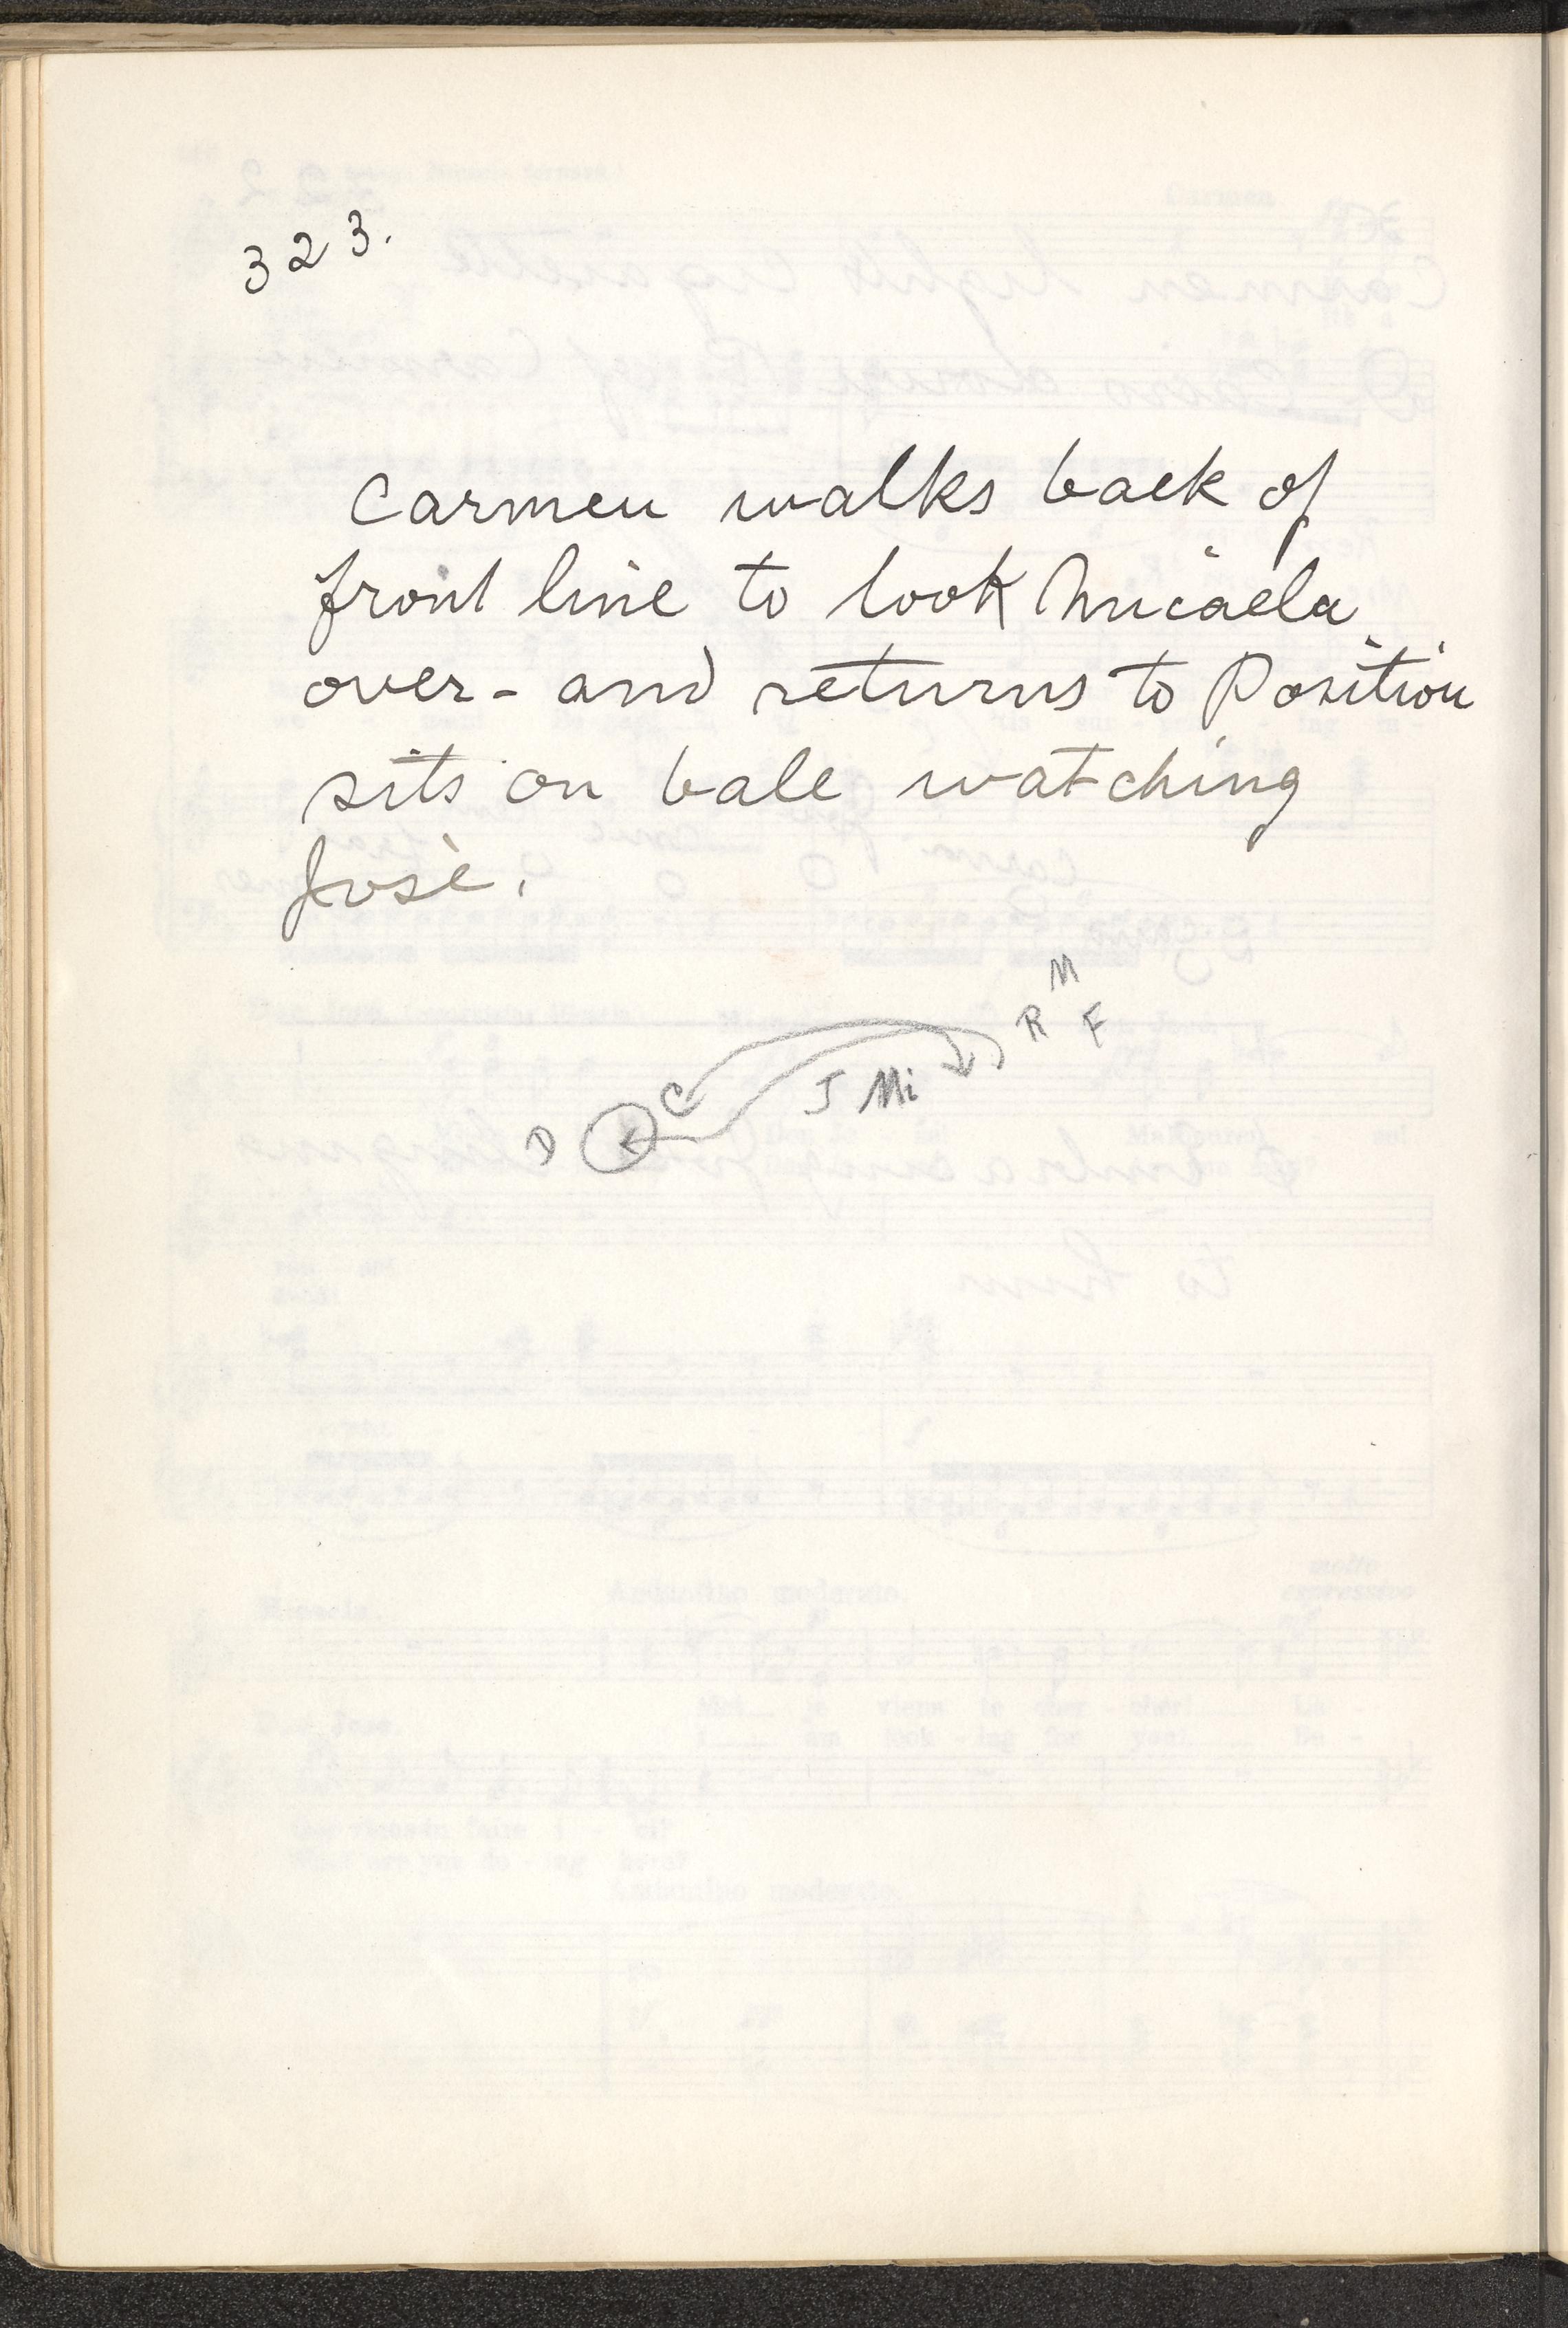 323.
Carmen walks back of
front line to look Micaela
over - and returns to Position
sits on bale watching
José.
M
R F
C J Mi
D